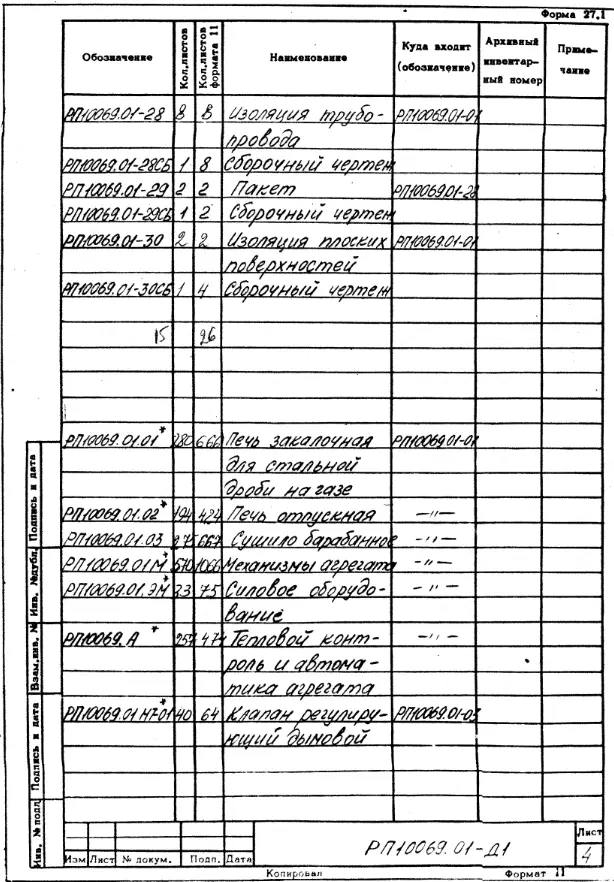 Форма 27.1
Обозначение Кол.листов Кол.листов формата 11 Наименование Куда входит (обозначение) Архивный инвентар-ный номер Приме-чание
РП10069.01-28 8 8 Изоляция трубо- РП10069.01-01
провода
РП10069.01-28СБ 1 8 Сборочный чертеж
РП10069.01-29 2 2 Пакет РП10069.01-28
РП10069.01-29СБ 1 2 Сборочный чертеж
РП10069.01-30 2 2 Изоляция плоских РП10069.01-01
поверхностей
РП10069.01-30СБ 1 4 Сборочный чертеж
15 26
РП10069.01.01* 280 666 Печь закалочная РП10069.01-01
для стальной
дроби на газе
РП10069.01.02* 194 424 Печь отпускная —"—
РП10069.01.03 275 667 Сушило барабанное —"—
РП10069.01М* 510 1066 Механизмы агрегата —"—
РП10069.01.ЭМ* 23 75 Силовое оборудо- —"—
вание
РП10069.А * 257 474 Тепловой конт- —"—
роль и автома-
тика агрегата
РП10069.01 40 64 Клапан регулиру- РП10069.01-03
ющий дымовой
Инв. № подл. Подпись и дата Взам.инв. № Инв. №дубл. Подпись и дата
РП10069.01-Д1
Лист
4
Изм Лист № докум. Подп. Дата
Копировал Формат 11